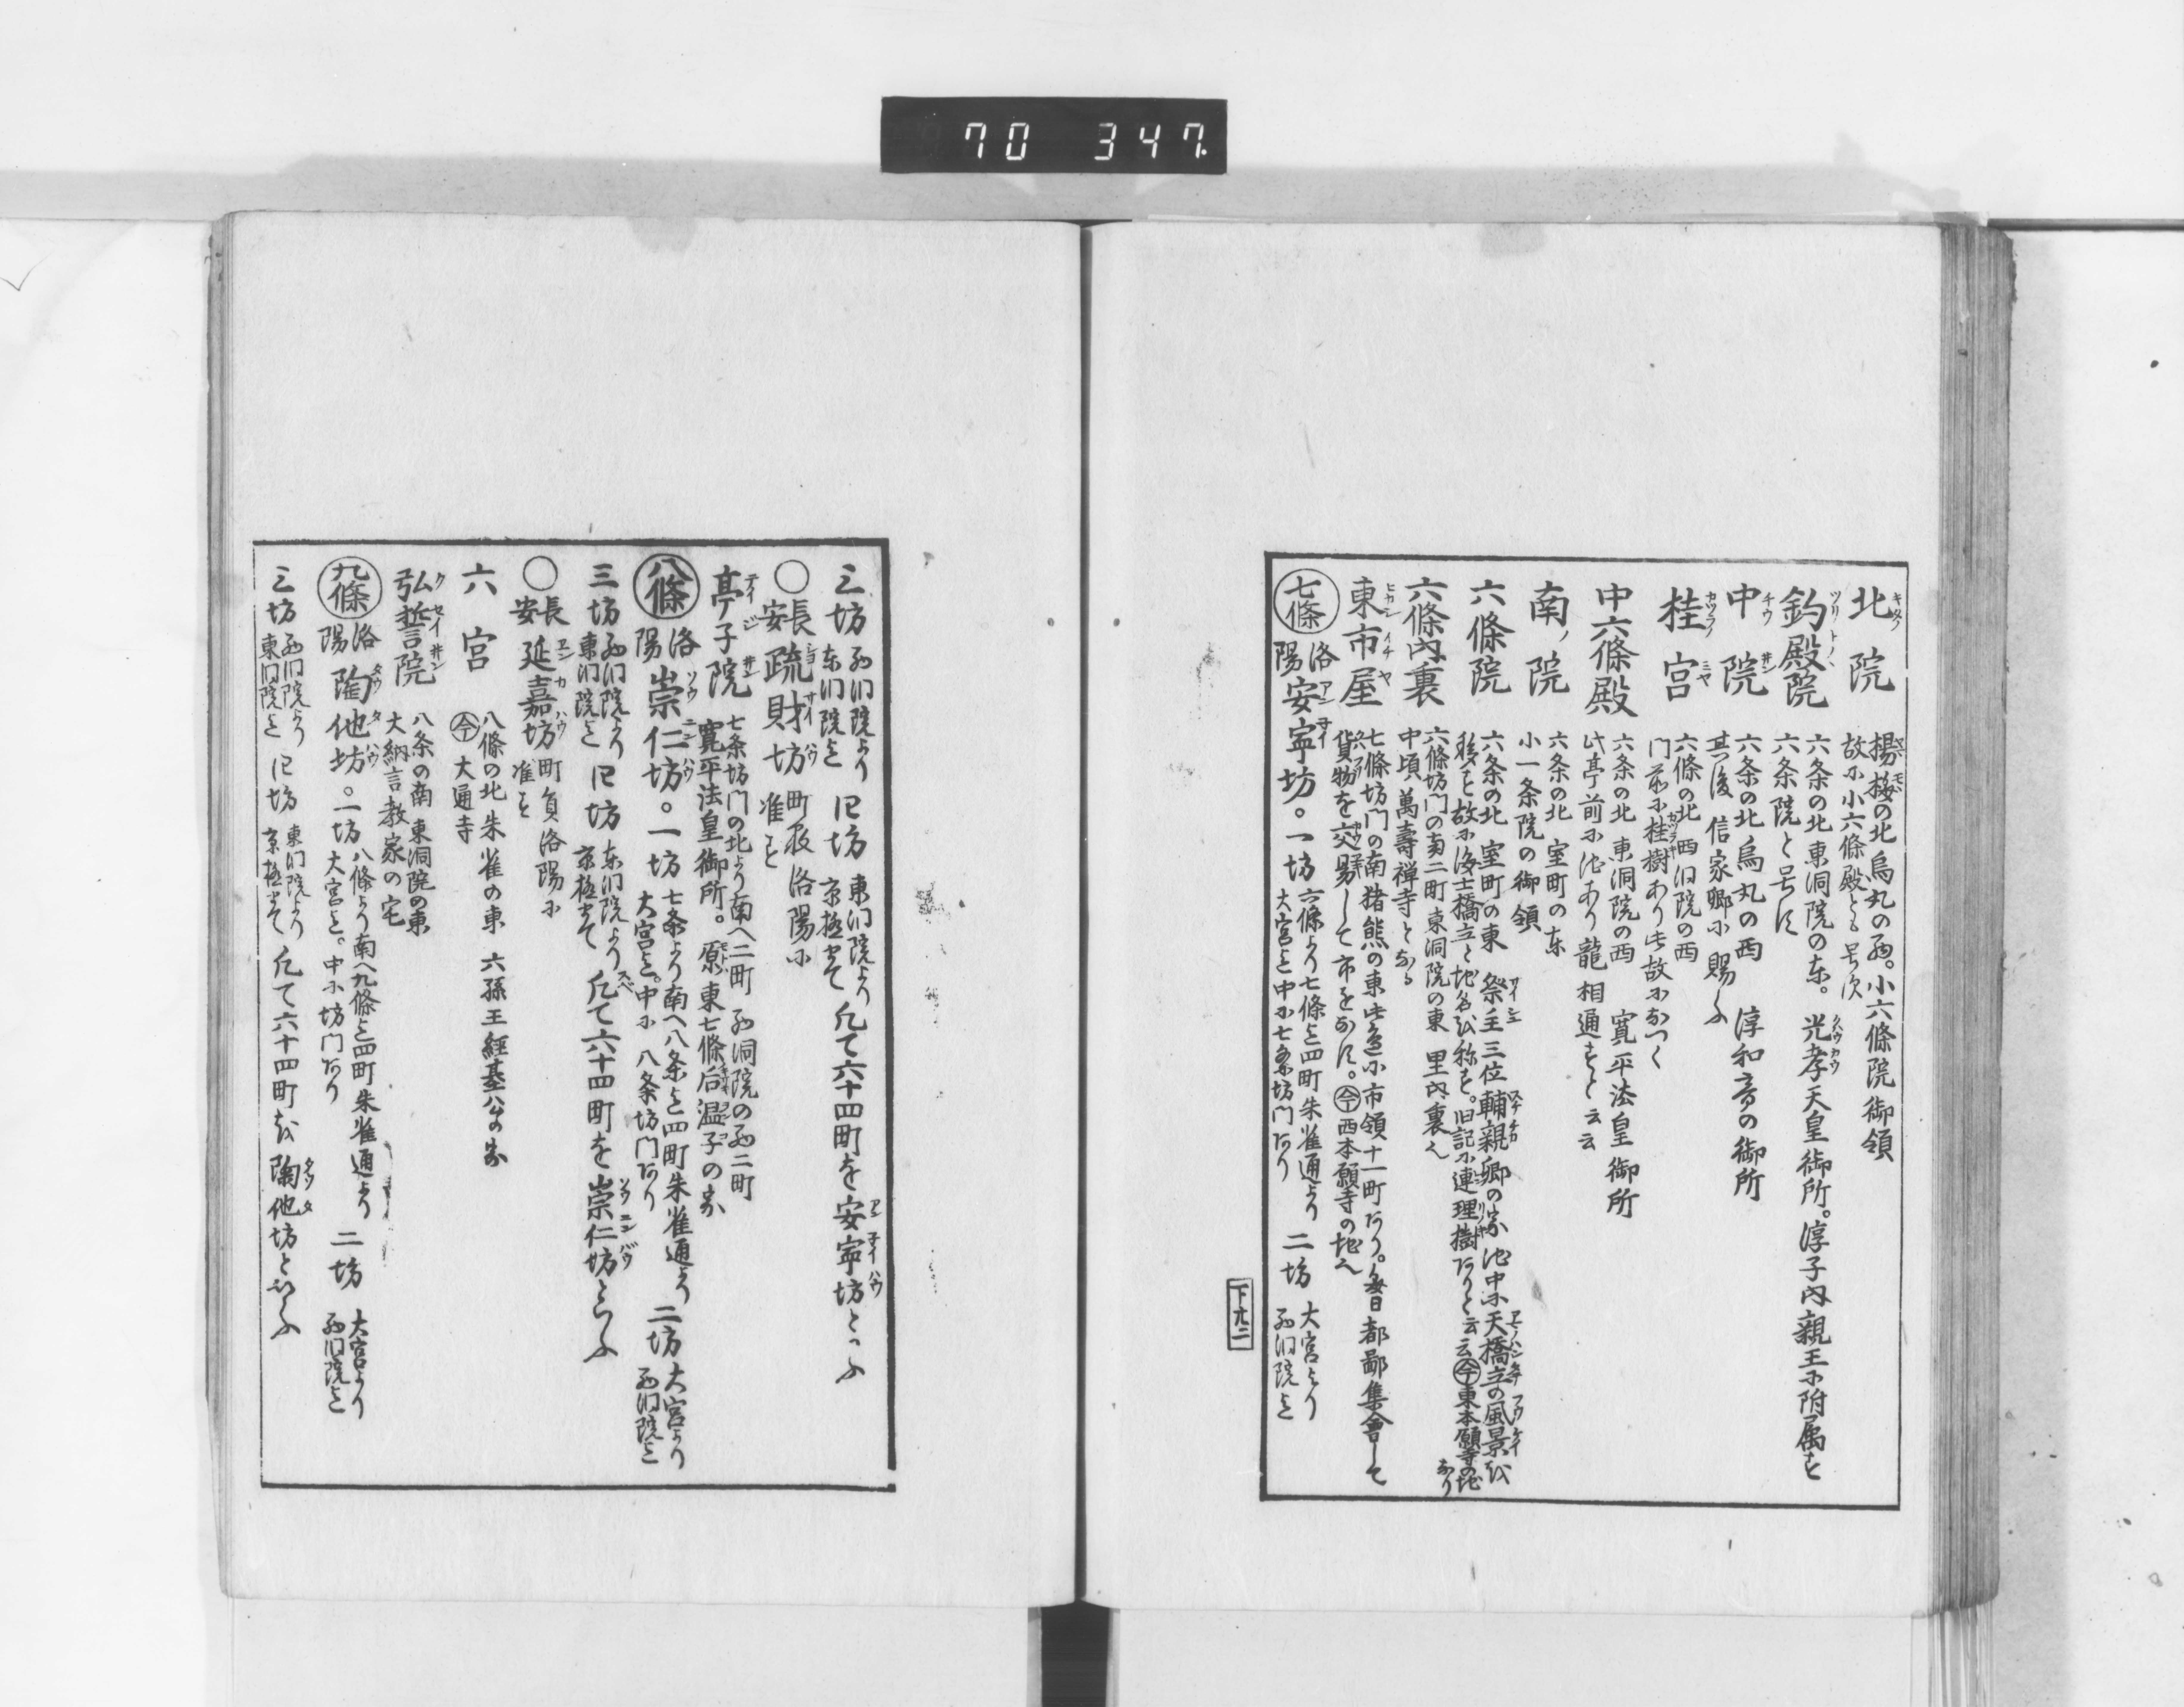 70 347
北院 楊梅の北烏丸の西。小六條院御領
故に小六條殿とも号次
釣殿院 六条の北東洞院の东。光孝天皇御所。淳子内親王に附属す
六条院と号す
中院 六条の北烏丸の西 淳和帝の御所
其後信家卿に賜ふ
桂宮 六條の北西洞院の西
門前に桂樹あり此故になつく
中六條殿 六条の北東洞院の西 寛平法皇御所
此亭前に池あり龍相通ずと云云
南ノ院 六条の北室町の东
小一条院の御領
六條院 六条の北室町の東 祭主三位輔親卿の家池中に天橋立の風景を
移す故に海士橋立と地名を称す。旧記に連理樹ありと云云㋑今東本願寺の地なり
六條内裏 六條坊門の南二町東洞院の東里内裏也
中頃萬壽禅寺となる
東市屋 七條坊門の南猪熊の東此邊に市領十一町あり。毎日都鄙集會して
貨物を交易して市をなす。今西本願寺の地也
七條 洛陽安寧坊。一坊 六條より七條迄四町朱雀通より
大宮迄中に七条坊門あり 二坊 大宮より
西洞院迄
下九二
三坊 西洞院より
东洞院迄 四坊 東洞院より
京極まで 凡て六十四町を安寧坊といふ
○長安疏財坊 町数洛陽に
准ず
亭子院 七条坊門の北より南へ二町西洞院の西二町
寛平法皇御所。原東七條后温子の家
八條 洛陽崇仁坊。一坊 七条より南へ八条迄四町朱雀通より
大宮迄。中に八条坊門あり 二坊 大宮より
西洞院迄
三坊 西洞院より
東洞院迄 四坊 东洞院より
京極まで 凡て六十四町を崇仁坊といふ
○長安延嘉坊 町員洛陽に
准ず
六宮 八條の北朱雀の東 六孫王經基公の家
今大通寺
弘誓院 八条の南東洞院の東
大納言教家の宅
九條 洛陽陶他坊。一坊 八條より南へ九條迄四町朱雀通より
大宮迄。中に坊門あり 二坊 大宮より
西洞院迄
三坊 西洞院より
東洞院迄 四坊 東洞院より
京極まで 凡て六十四町を陶他坊といふ